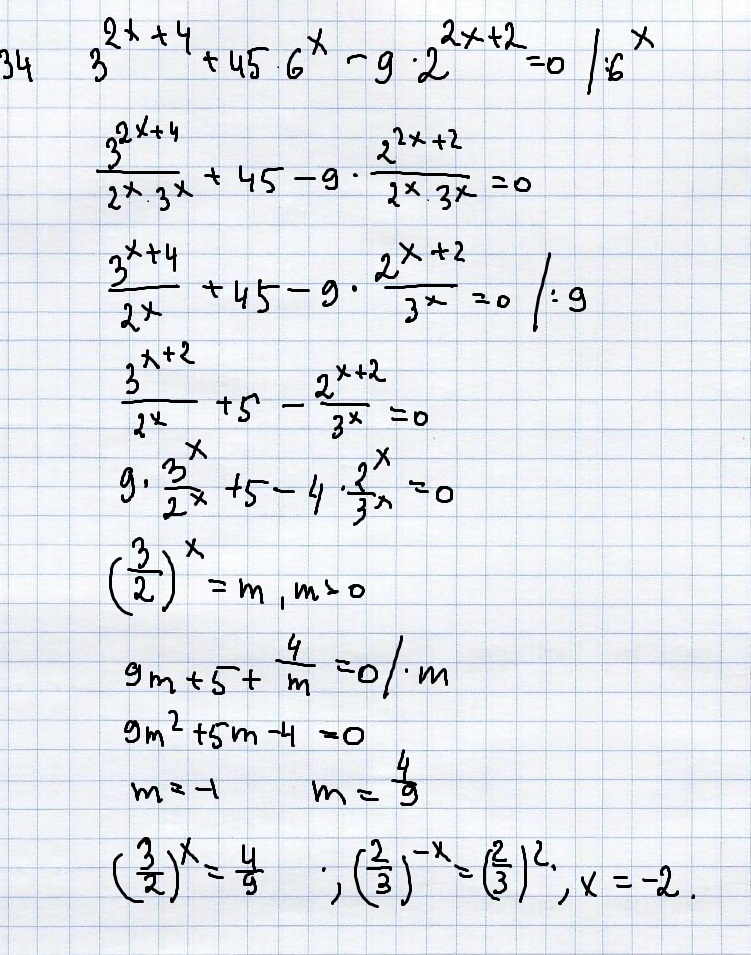 34 3^{2x+4} + 45 · 6^x - 9 · 2^{2x+2} = 0 | :6^x
\frac{3^{2x+4}}{2^x · 3^x} + 45 - 9 · \frac{2^{2x+2}}{2^x · 3^x} = 0
\frac{3^{x+4}}{2^x} + 45 - 9 · \frac{2^{x+2}}{3^x} = 0 | : 9
\frac{3^{x+2}}{2^x} + 5 - \frac{2^{x+2}}{3^x} = 0
9 · \frac{3^x}{2^x} + 5 - 4 · \frac{2^x}{3^x} = 0
(\frac{3}{2})^x = m, m > 0
9m + 5 + \frac{4}{m} = 0 | · m
9m^2 + 5m - 4 = 0
m = -1 m = \frac{4}{9}
(\frac{3}{2})^x = \frac{4}{9} ; (\frac{2}{3})^{-x} = (\frac{2}{3})^2 ; x = -2.